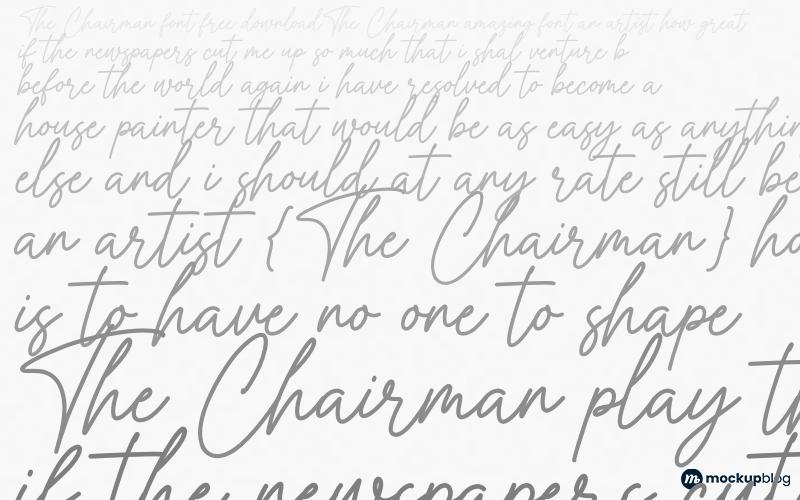 The Chairman font free download The Chairman amazing font an artist how great
if the newspapers cut me up so much that i shal venture b
before the world again i have resolved to become a
house painter that would be as easy as anythin
else and i should at any rate still be
an artist { The Chairman } ha
is to have no one to shape
The Chairman play th
if the newspapers cut
mockupblog